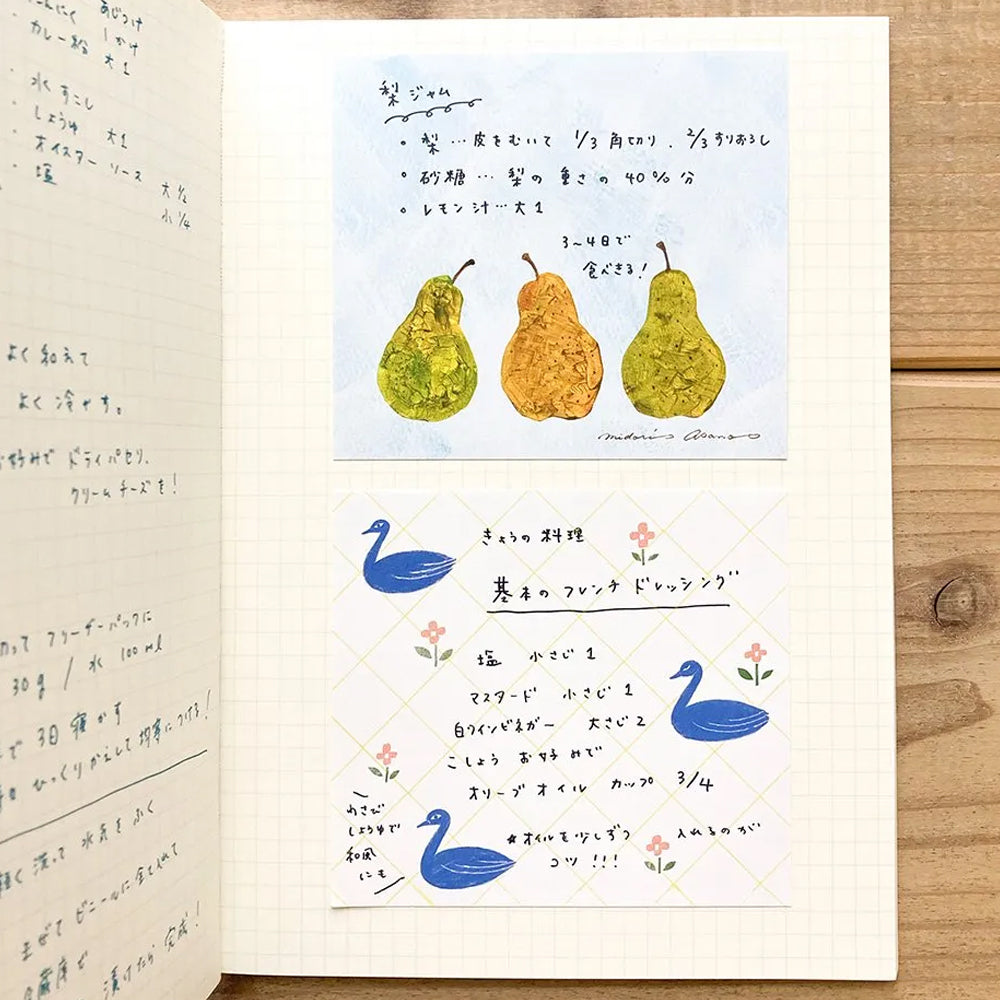 あじつけ
しかけ
カレー粉 大1
・ 水 すこし
・ しょうゆ 大1
・ オイスターソース 大1/2
・ 塩 小1/4
よく和えて
よく冷やす。
お好みで ドライパセリ、
クリームチーズを!
切って フリーザーパックに
30g / 水 100ml
で 3日 寝かす
ひっくりかえして 均等につける!
軽く洗って 水気をふく
全部 ビニールに全て入れて
冷蔵庫で 漬けたら 完成!
梨ジャム
・ 梨…皮をむいて 1/3角切り、2/3すりおろし
・ 砂糖…梨の重さの40%分
・ レモン汁…大1
3〜4日で
食べきる!
midori asano
きょうの料理
基本のフレンチドレッシング
塩 小さじ1
マスタード 小さじ1
白ワインビネガー 大さじ2
こしょう お好みで
オリーブオイル カップ 3/4
わさび
しょうゆで
和風
にも
★オイルを少しずつ 入れるのが
コツ!!!